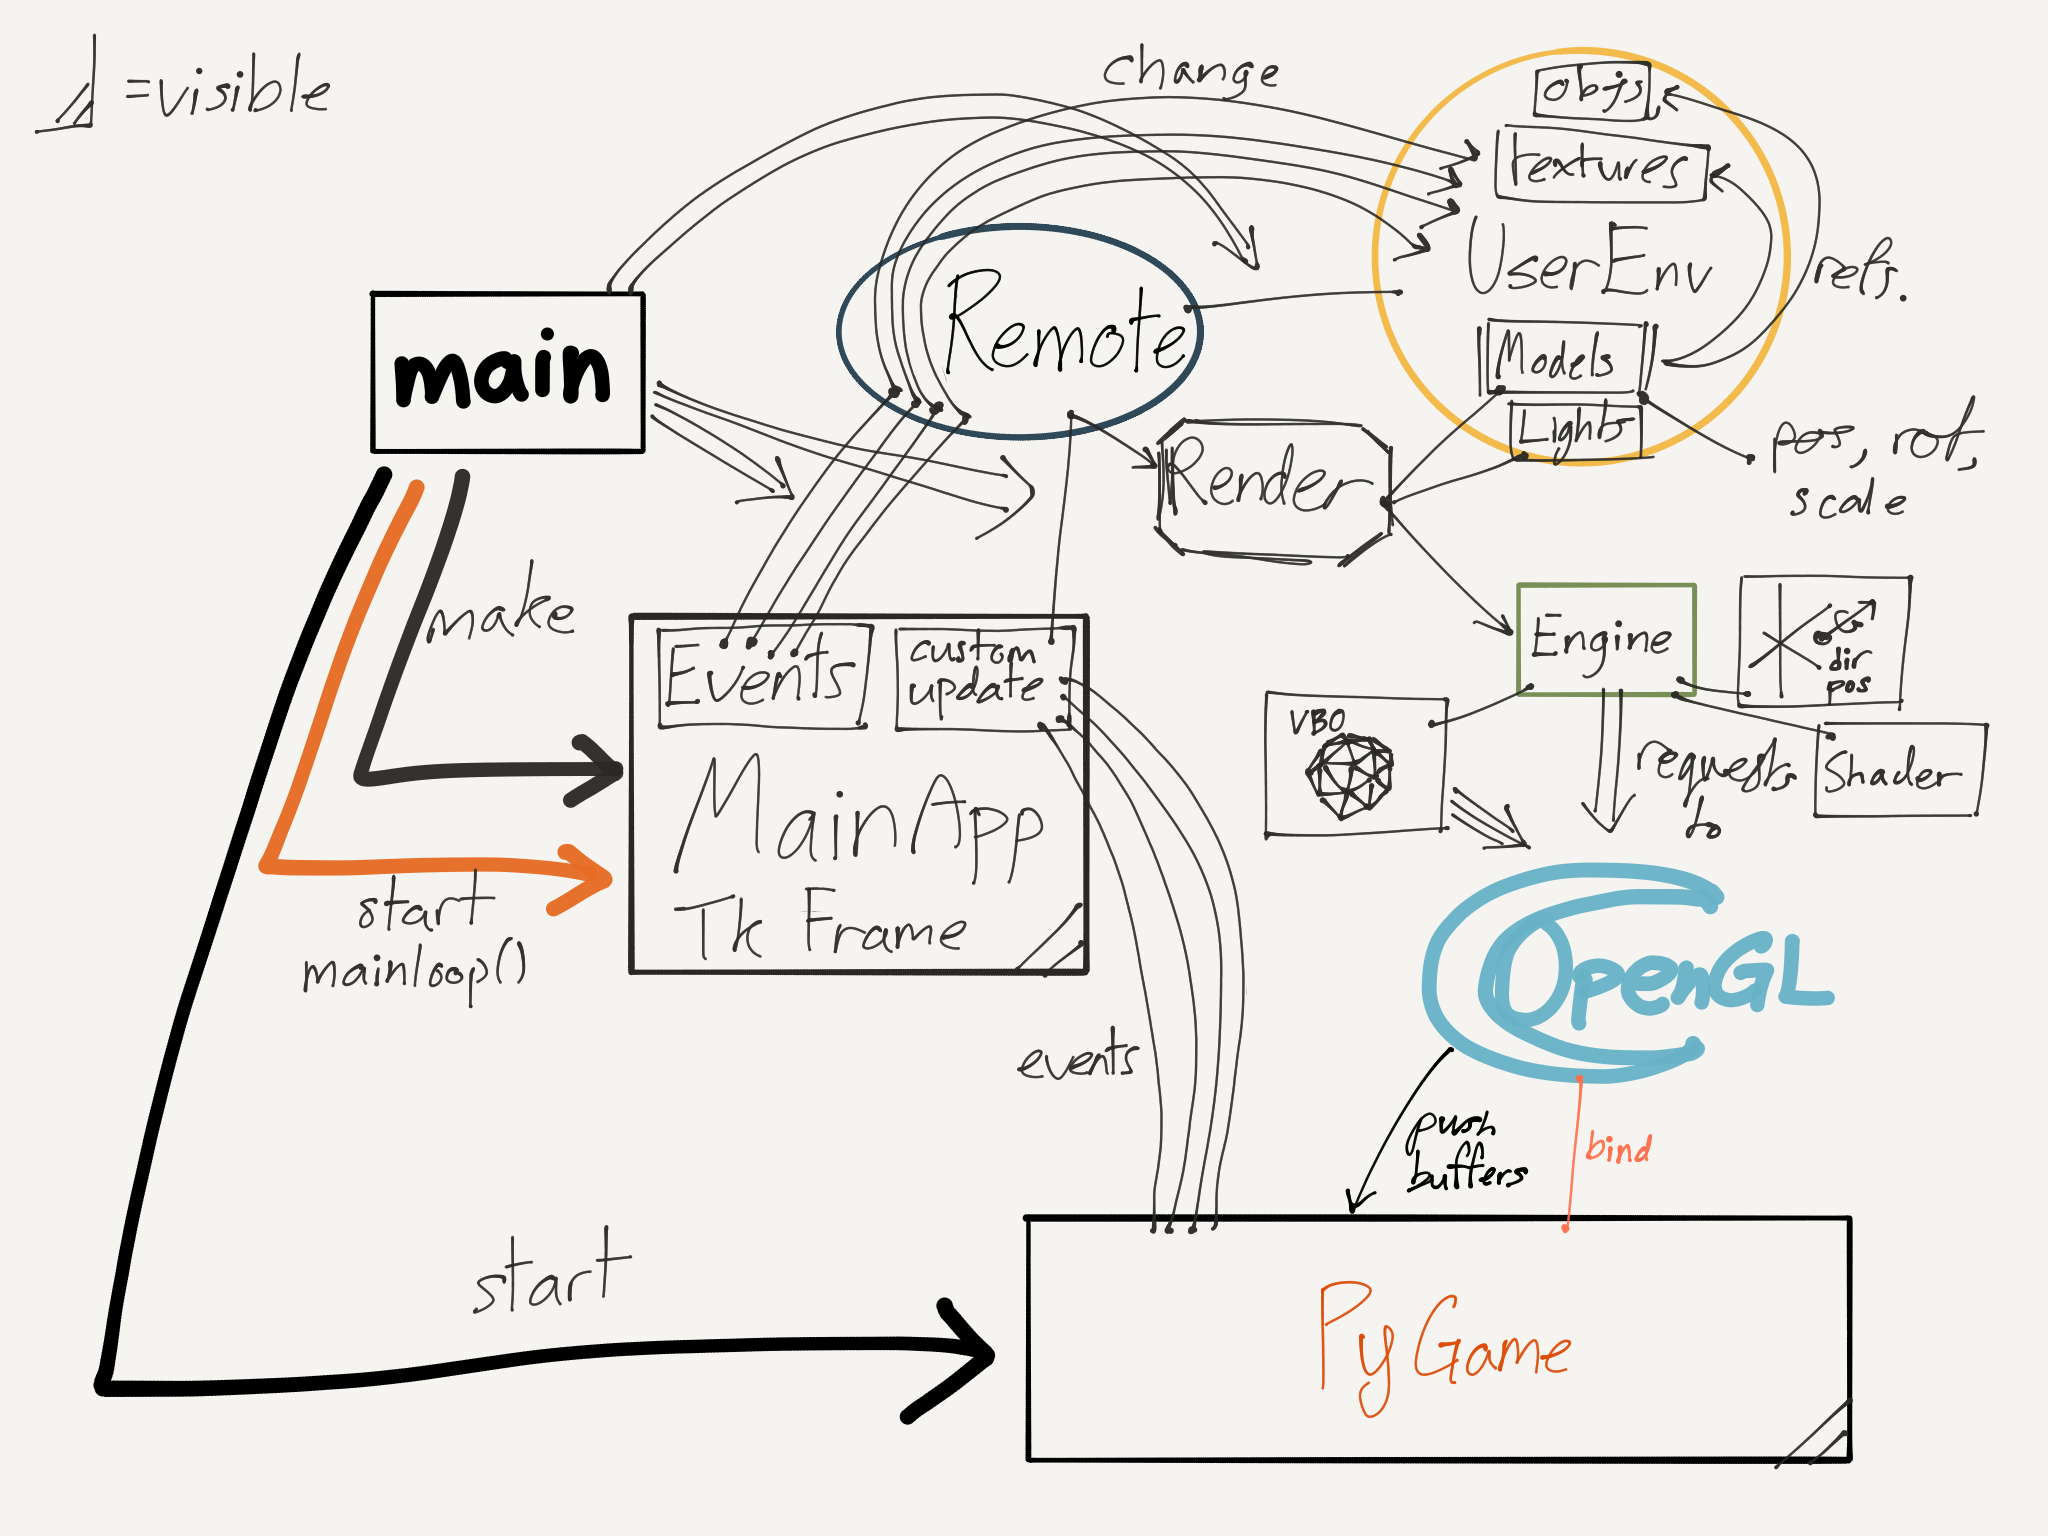 =visible
change
objs
textures
UserEnv
refs.
Models
Lights
pos, rot,
scale
main
Remote
Render
make
Events
custom
update
MainApp
Tk Frame
start
mainloop()
Engine
dir
pos
VBO
Shader
requests
to
OpenGL
events
push
buffers
bind
start
PyGame